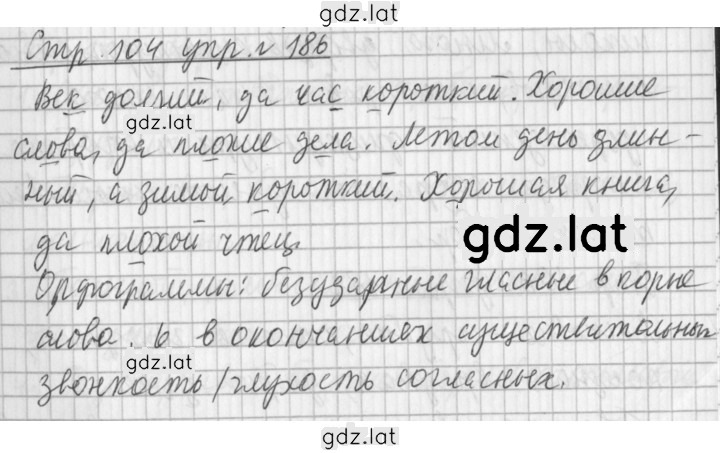 gdz.lat
Стр 104 упр. г 186
Век долгий, да час короткий. Хорошие
gdz.lat
слова, да плохие дела. Летом день длин-
ный, а зимой короткий. Хорошая книга,
да плохой чтец.
gdz.lat
Орфограммы: безударные гласные в корне
слова. ь в окончаниях существительных
gdz.lat
звонкость/глухость согласных.
gdz.lat